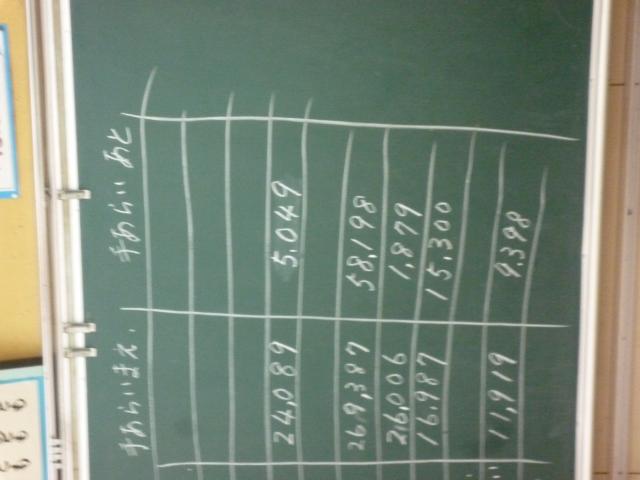 手あらいまえ. 手あらい あと
24,089 5,049
269,387 58,198
26,006 1,879
16,987 15,300
11,919 9,398